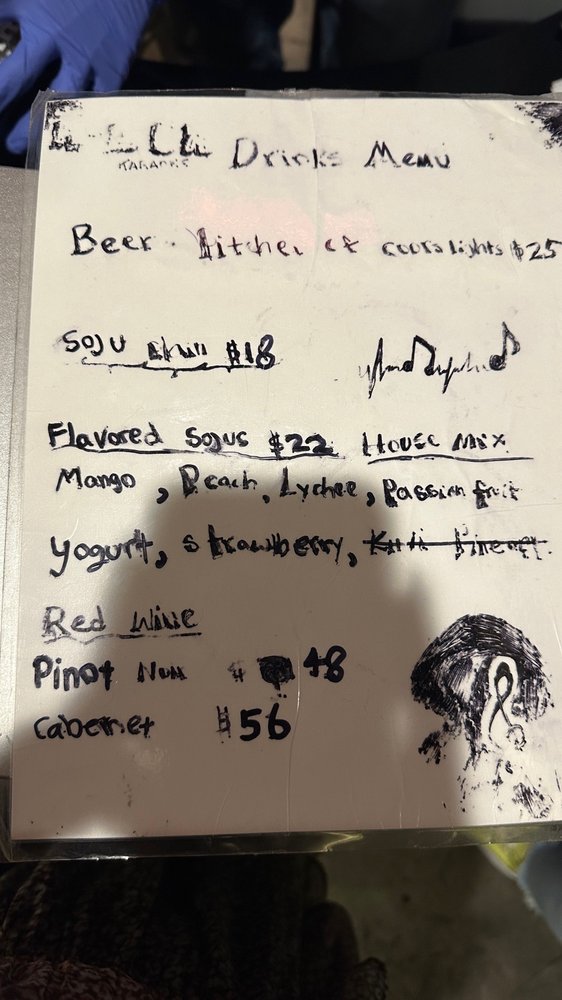 KARAOKE Drinks Menu
Beer Pitcher of coors lights $25
Soju $18
Flavored Sojus $22 House Mix
Mango, Peach, Lychee, Passion fruit
Yogurt, strawberry,
Red Wine
Pinot $ 48
Cabernet $56